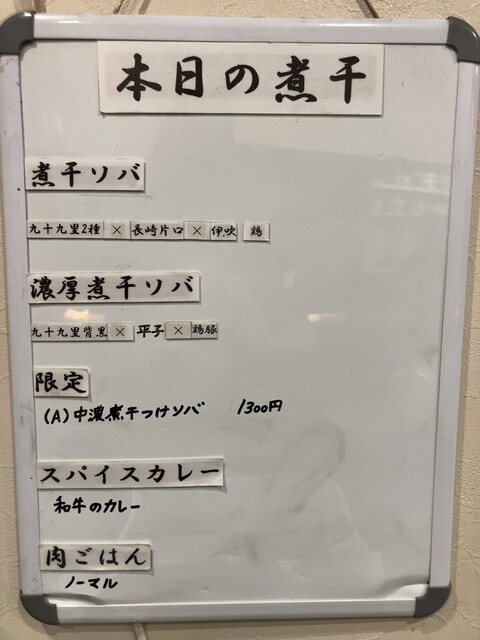 本日の煮干
煮干ソバ
九十九里2種 × 長崎片口 × 伊吹 鶏
濃厚煮干ソバ
九十九里背黒 × 平子 × 鶏豚
限定
(A)中濃煮干つけソバ 1300円
スパイスカレー
和牛のカレー
肉ごはん
ノーマル